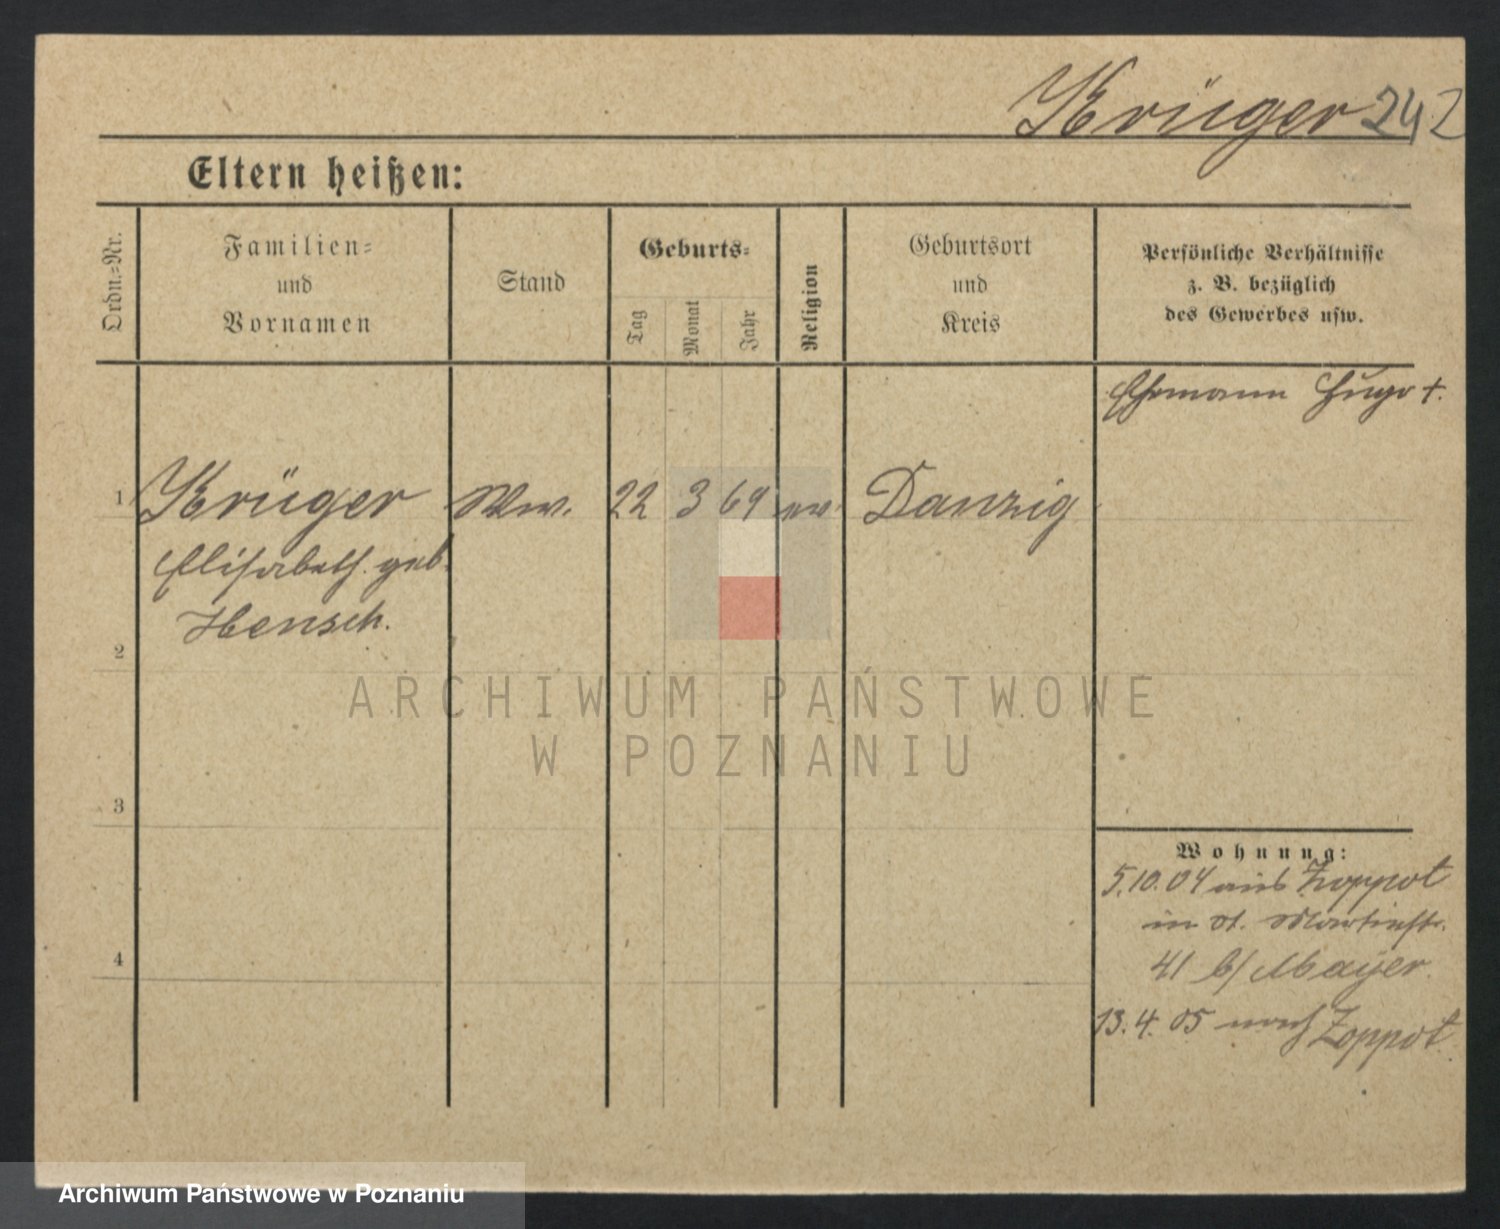 Krüger 242
Eltern heißen:
Ordn.=Nr.
Familien=
und
Vornamen
Stand
Geburts=
Tag
Monat
Jahr
Religion
Geburtsort
und
Kreis
Persönliche Verhältnisse
z. B. bezüglich
des Gewerbes usw.
Ehemann Hugo †.
1 Krüger Ww. 22 3 69 ev. Danzig
Elisabeth. geb.
Hensch.
2
3
4
Wohnung:
5.10.04 aus Zoppot
in St. Martinstr.
41 b/ Mayer.
13.4.05 nach Zoppot
ARCHIWUM PAŃSTWOWE
W POZNANIU
Archiwum Państwowe w Poznaniu